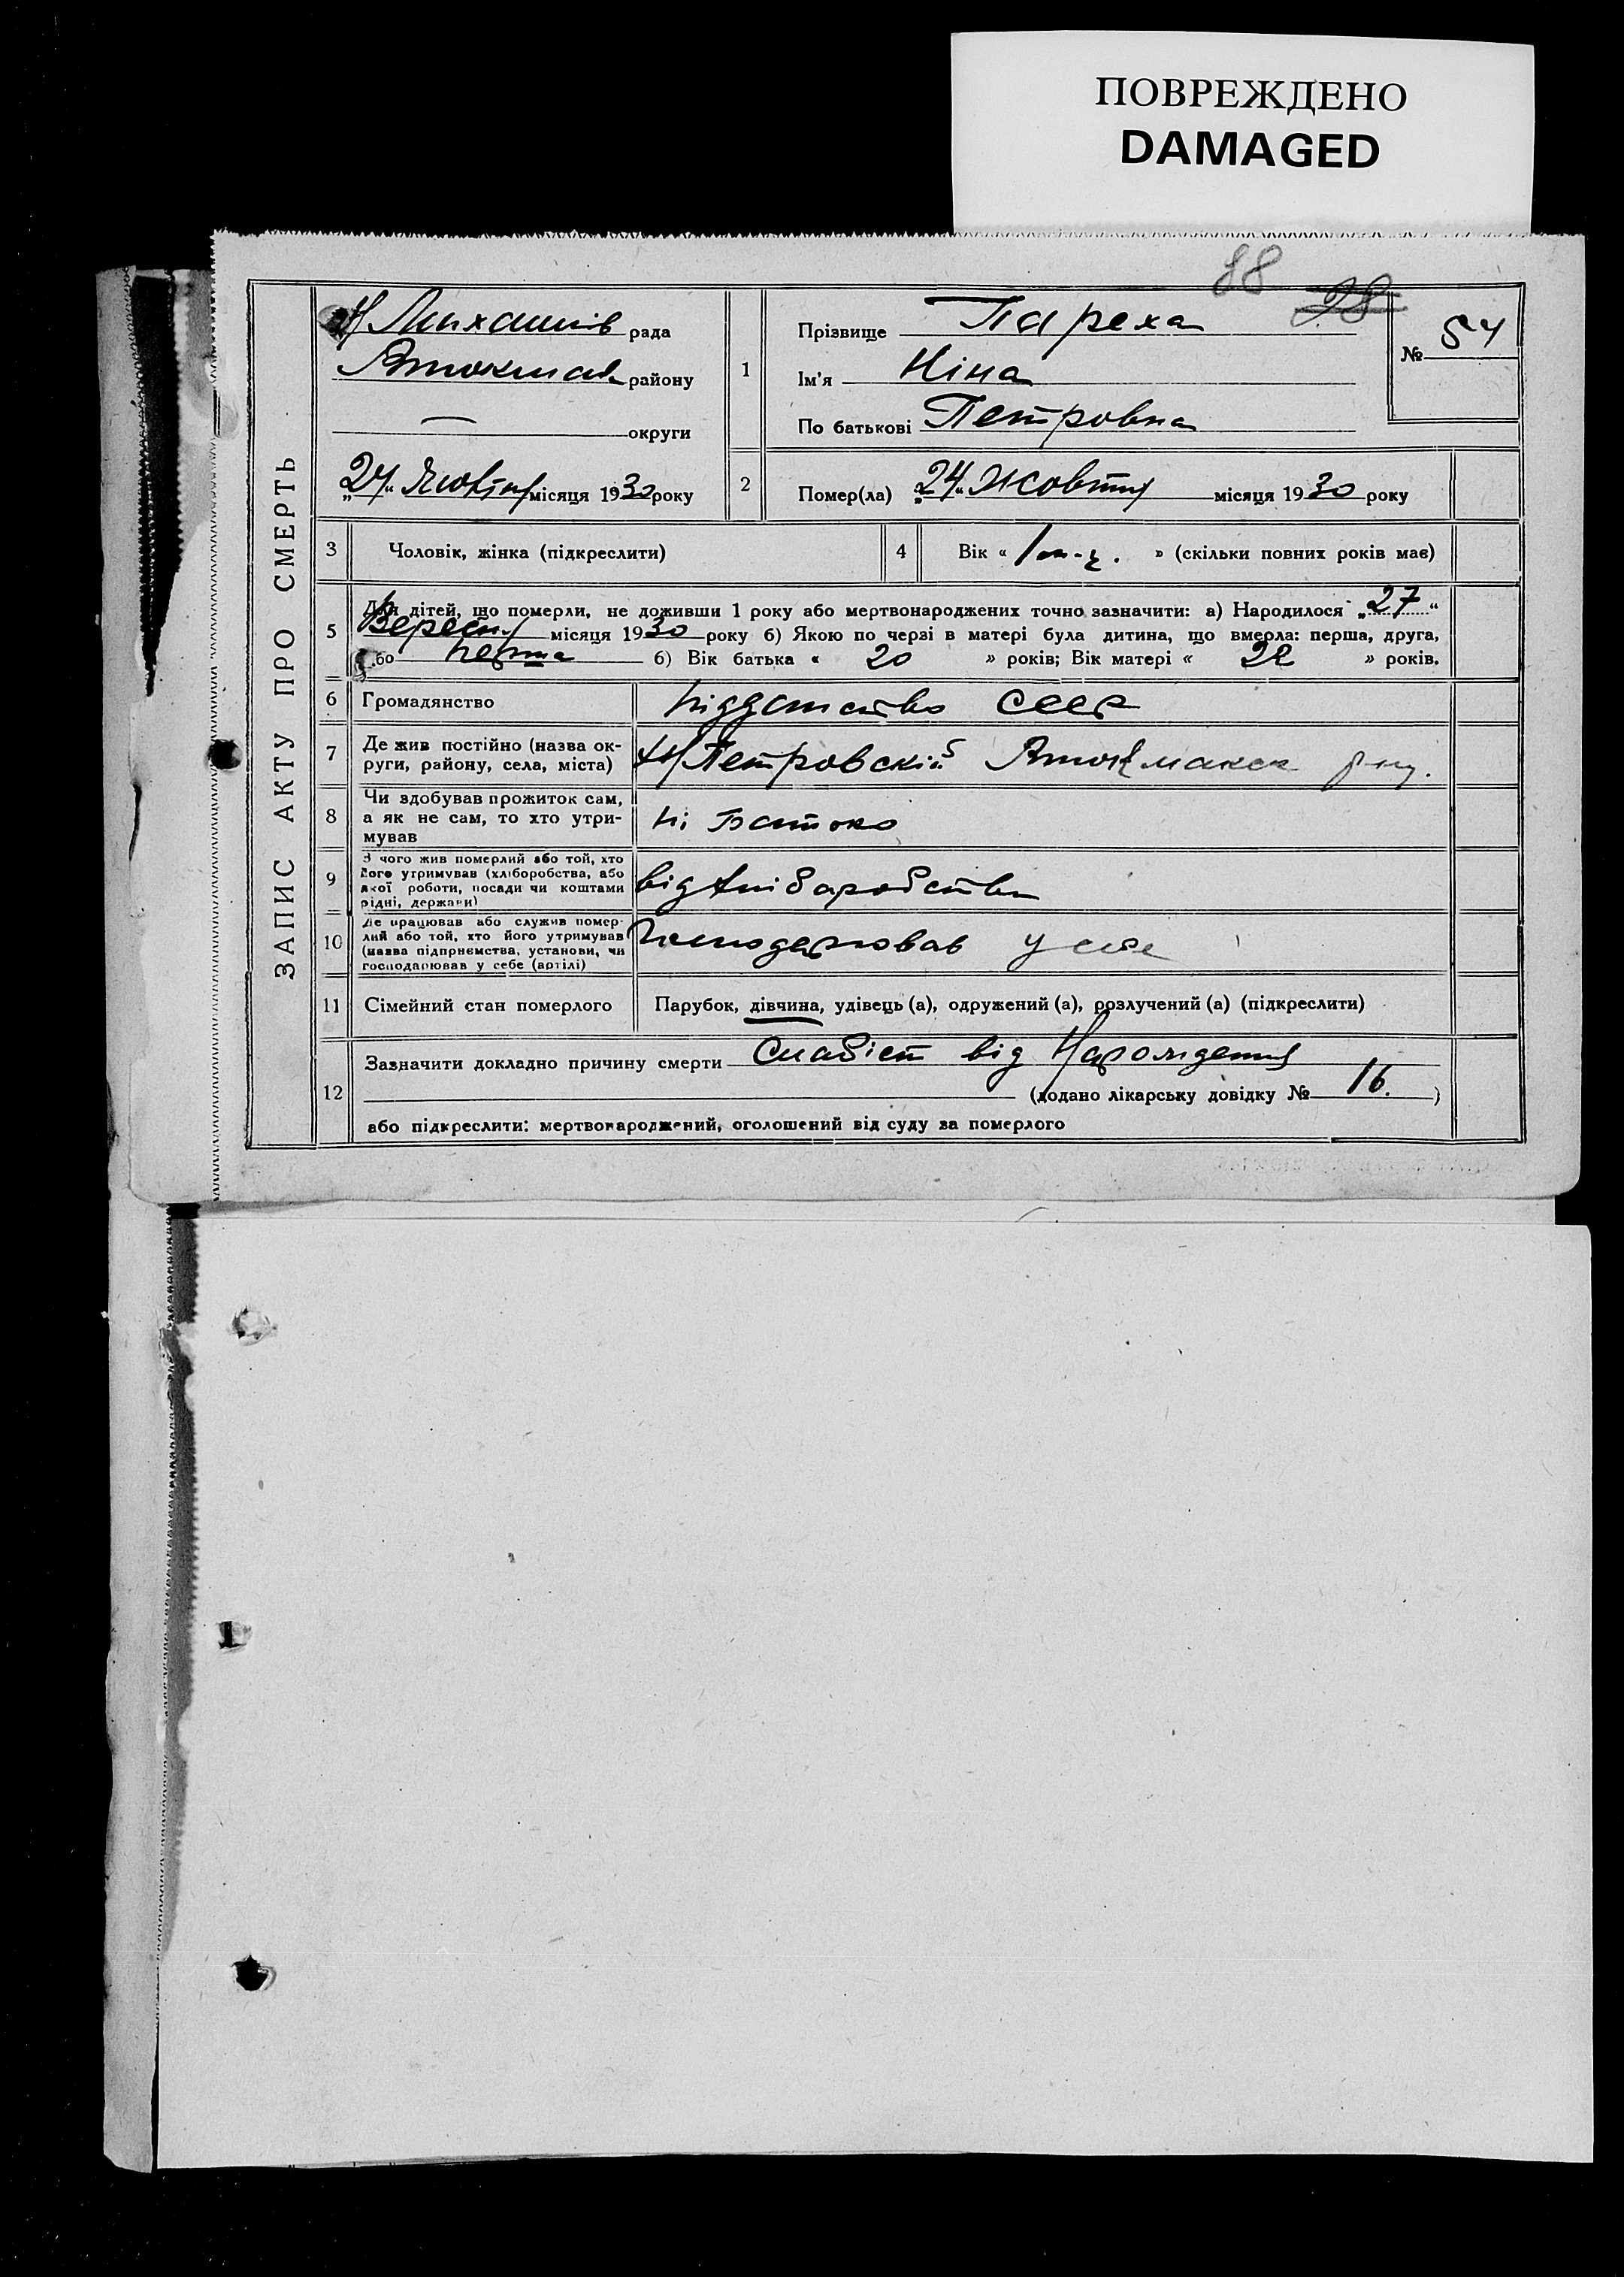 ПОВРЕЖДЕНО
DAMAGED
88
28
ЗАПИС АКТУ ПРО СМЕРТЬ
рада
району
— округи
"24" Жовтня місяця 1930 року
1
Прізвище Пареха
Ім'я Ніна
По батькові Петровна
№ 54
2
Помер(ла) "24" Жовтня місяця 1930 року
3
Чоловік, жінка (підкреслити)
4
Вік « 1 м-ц. » (скільки повних років має)
5
Для дітей, що померли, не доживши 1 року або мертвонароджених точно зазначити: а) Народилося „27“
Вересня місяця 1930 року б) Якою по черзі в матері була дитина, що вмерла: перша, друга,
або перша б) Вік батька « 20 » років; Вік матері « 22 » років.
6
Громадянство
підданство СССР
7
Де жив постійно (назва ок-
руги, району, села, міста)
Петровскій
8
Чи здобував прожиток сам,
а як не сам, то хто утри-
мував
ні Батько
9
З чого жив померлий або той, хто
його утримував (хліборобства, або
якої роботи, посади чи коштами
рідні, держави)
від хліборобства
10
Де працював або служив помер-
лий або той, хто його утримував
(назва підприємства, установи, чи
господарював у себе (артілі)
Господарював у себе
11
Сімейний стан померлого
Парубок, дівчина, удівець (а), одружений (а), розлучений (а) (підкреслити)
12
Зазначити докладно причину смерти Слабіст від Нарождения
(додано лікарську довідку № 16. )
або підкреслити: мертвонароджений, оголошений від суду за померлого